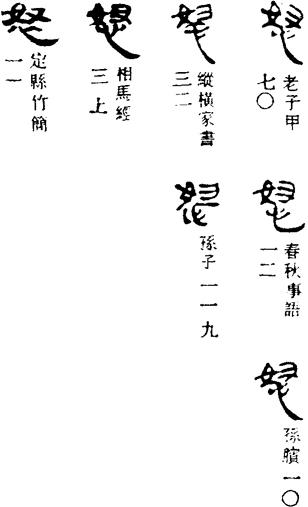 怒
老子甲
七〇
怒
春秋事語
一二
怒
孫臏一〇
怒
縱橫家書
三二
怒
孫子一一九
怒
相馬經
三上
怒
定縣竹簡
一一